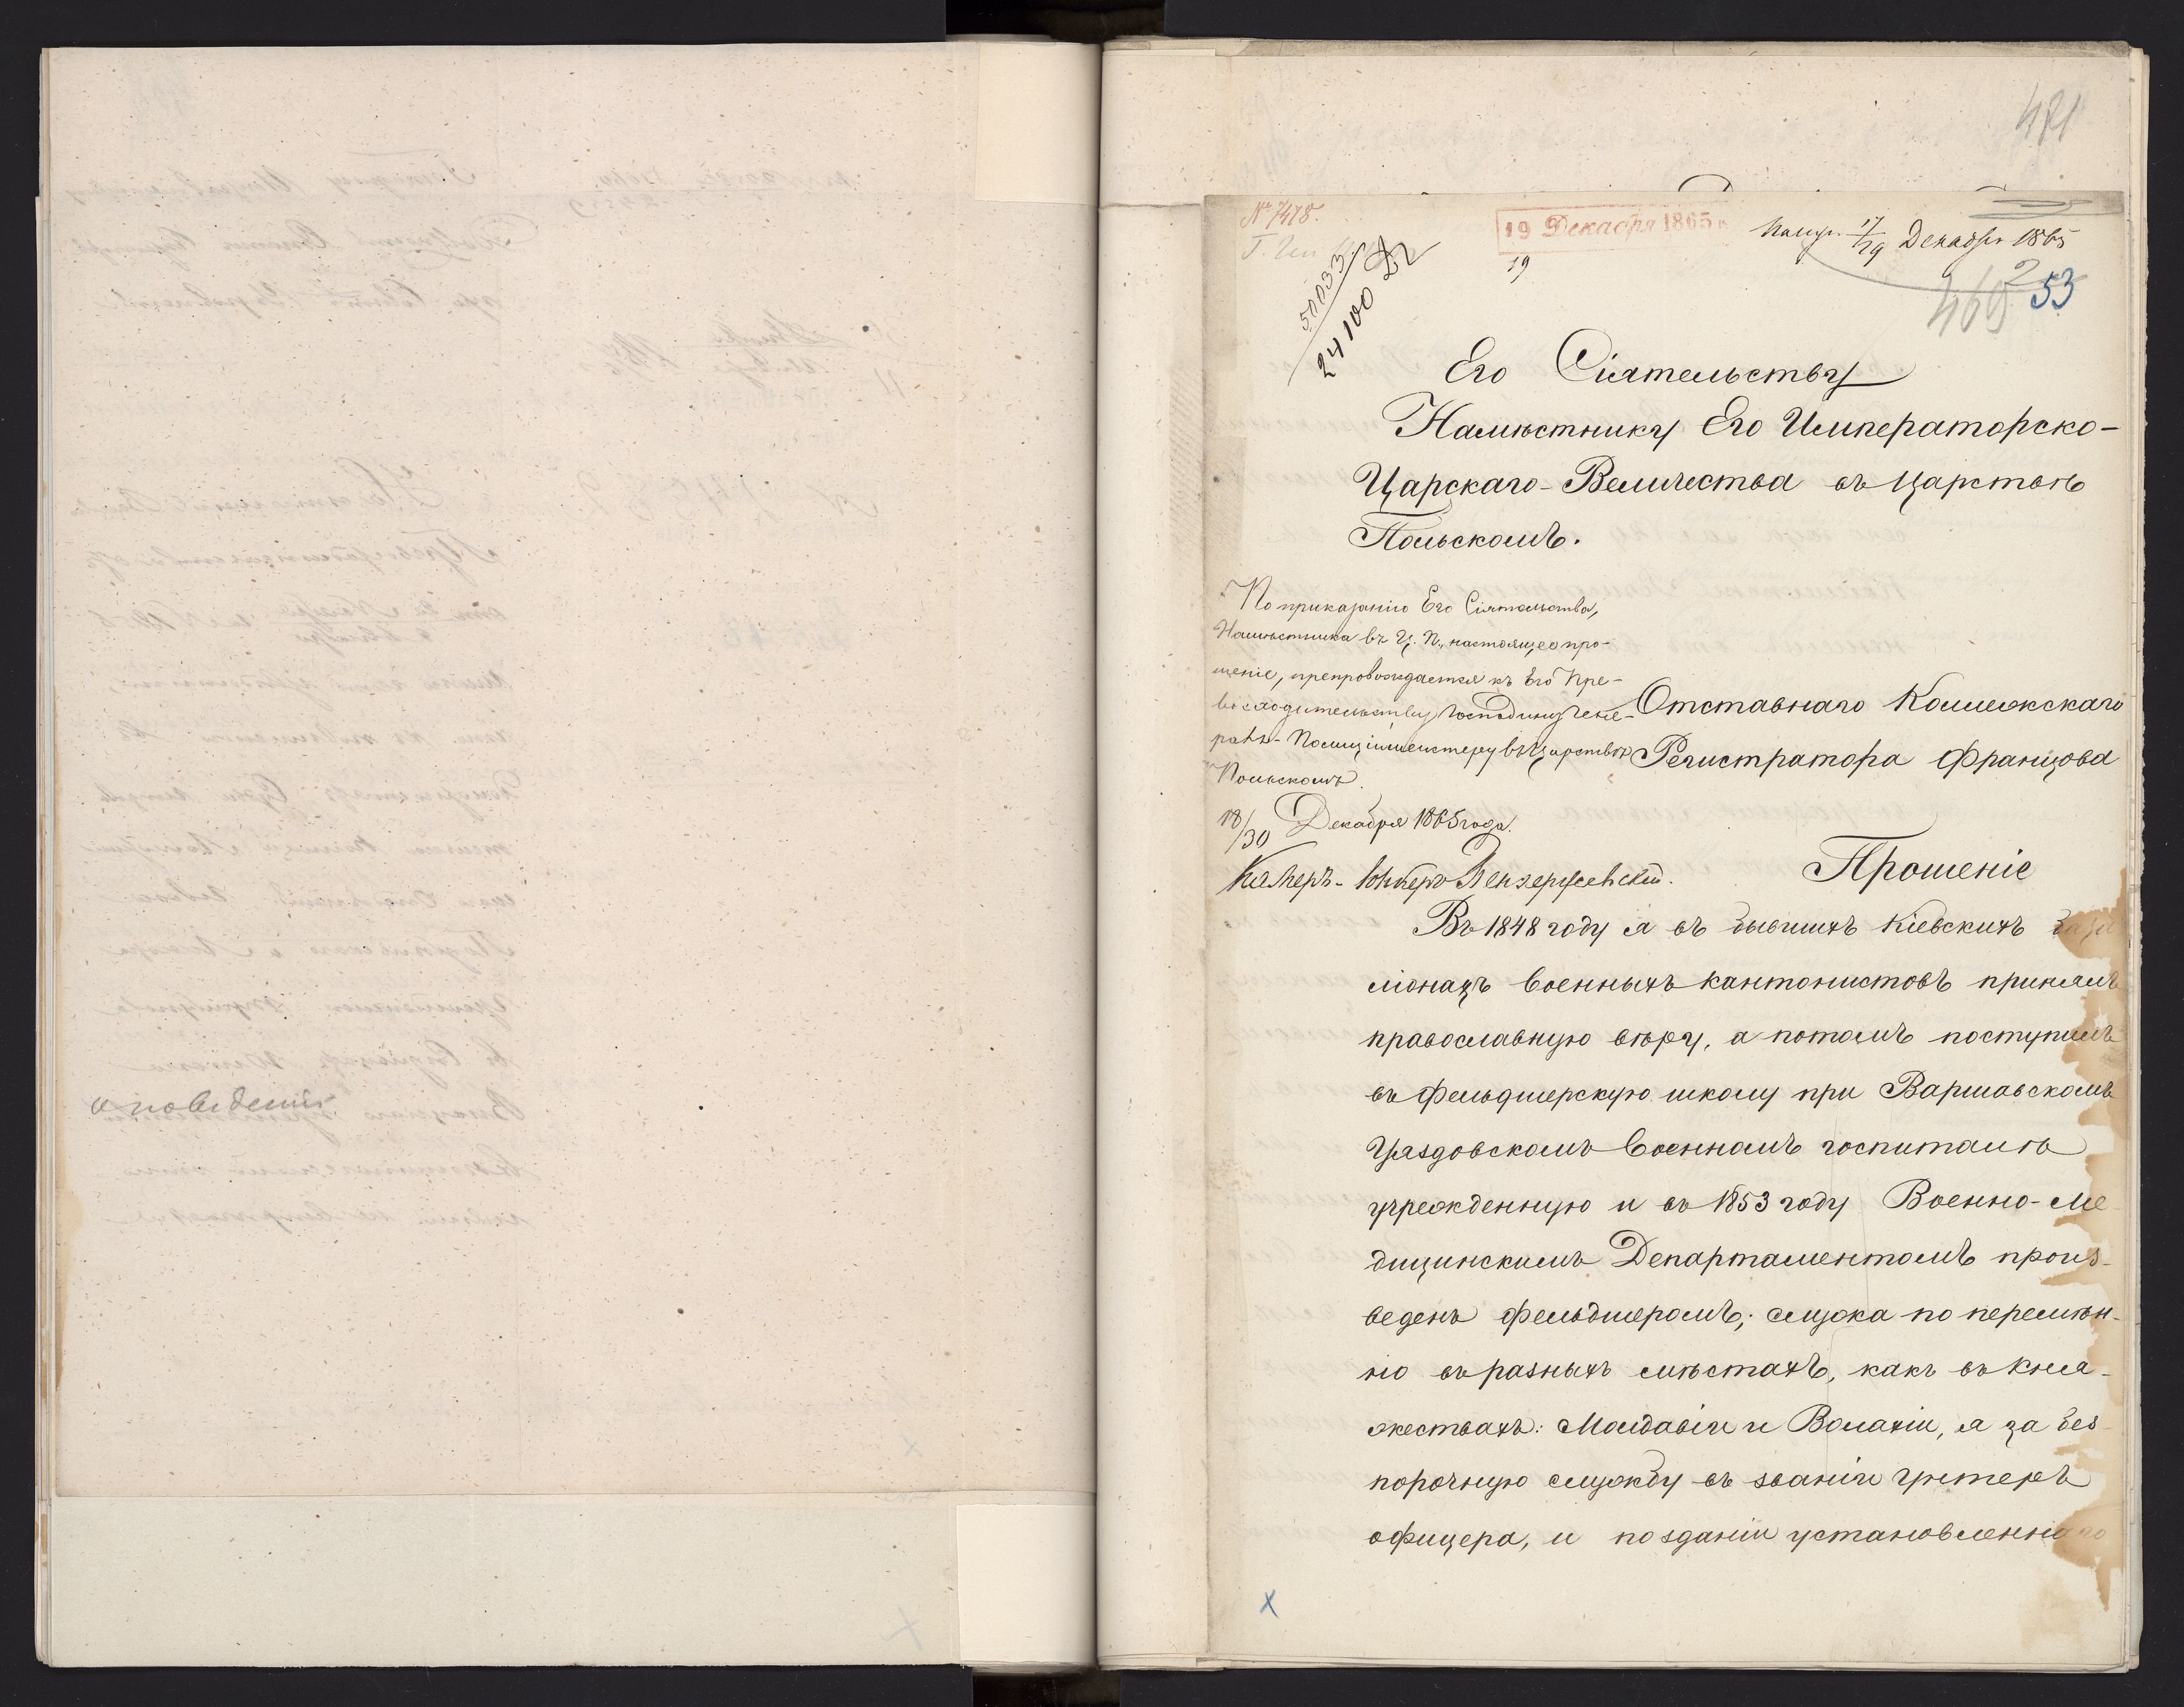 о поведеніи
481
№ 7478.
19 Декабря 1865
19
17/29 Декабря 1865
53
24100
Его Сіятельству
Намѣстнику Его Императорско-
Царскаго-Величества въ Царствѣ
Польскомъ.
По приказанію Его Сіятельства,
Намѣстника въ Ц. П., настоящее про-
шеніе, препровождается къ Его Пре-
восходительству Господину Гене-
ралъ-Полиціймейстеру въ Царствѣ
Польскомъ.
18/30 Декабря 1865 года.
Камеръ-Юнкеръ
Отставнаго Коллежскаго
Регистратора Францова
Прошеніе
Въ 1848 году я въ бывшихъ Кіевскихъ бата
ліонахъ военныхъ кантонистовъ принялъ
православную вѣру, а потомъ поступилъ
въ фельдшерскую школу при Варшавскомъ
Уяздовскомъ Военномъ госпиталѣ
учрежденную и въ 1853 году Военно-Ме
дицинскимъ Департаментомъ произ-
веденъ фельдшеромъ; служа по перемѣн-
но въ разныхъ мѣстахъ, какъ въ Кня-
жествахъ: Молдавіи и Волахіи, я за без
порочную службу въ званіи унтеръ
офицера, и по зданіи установленнаго